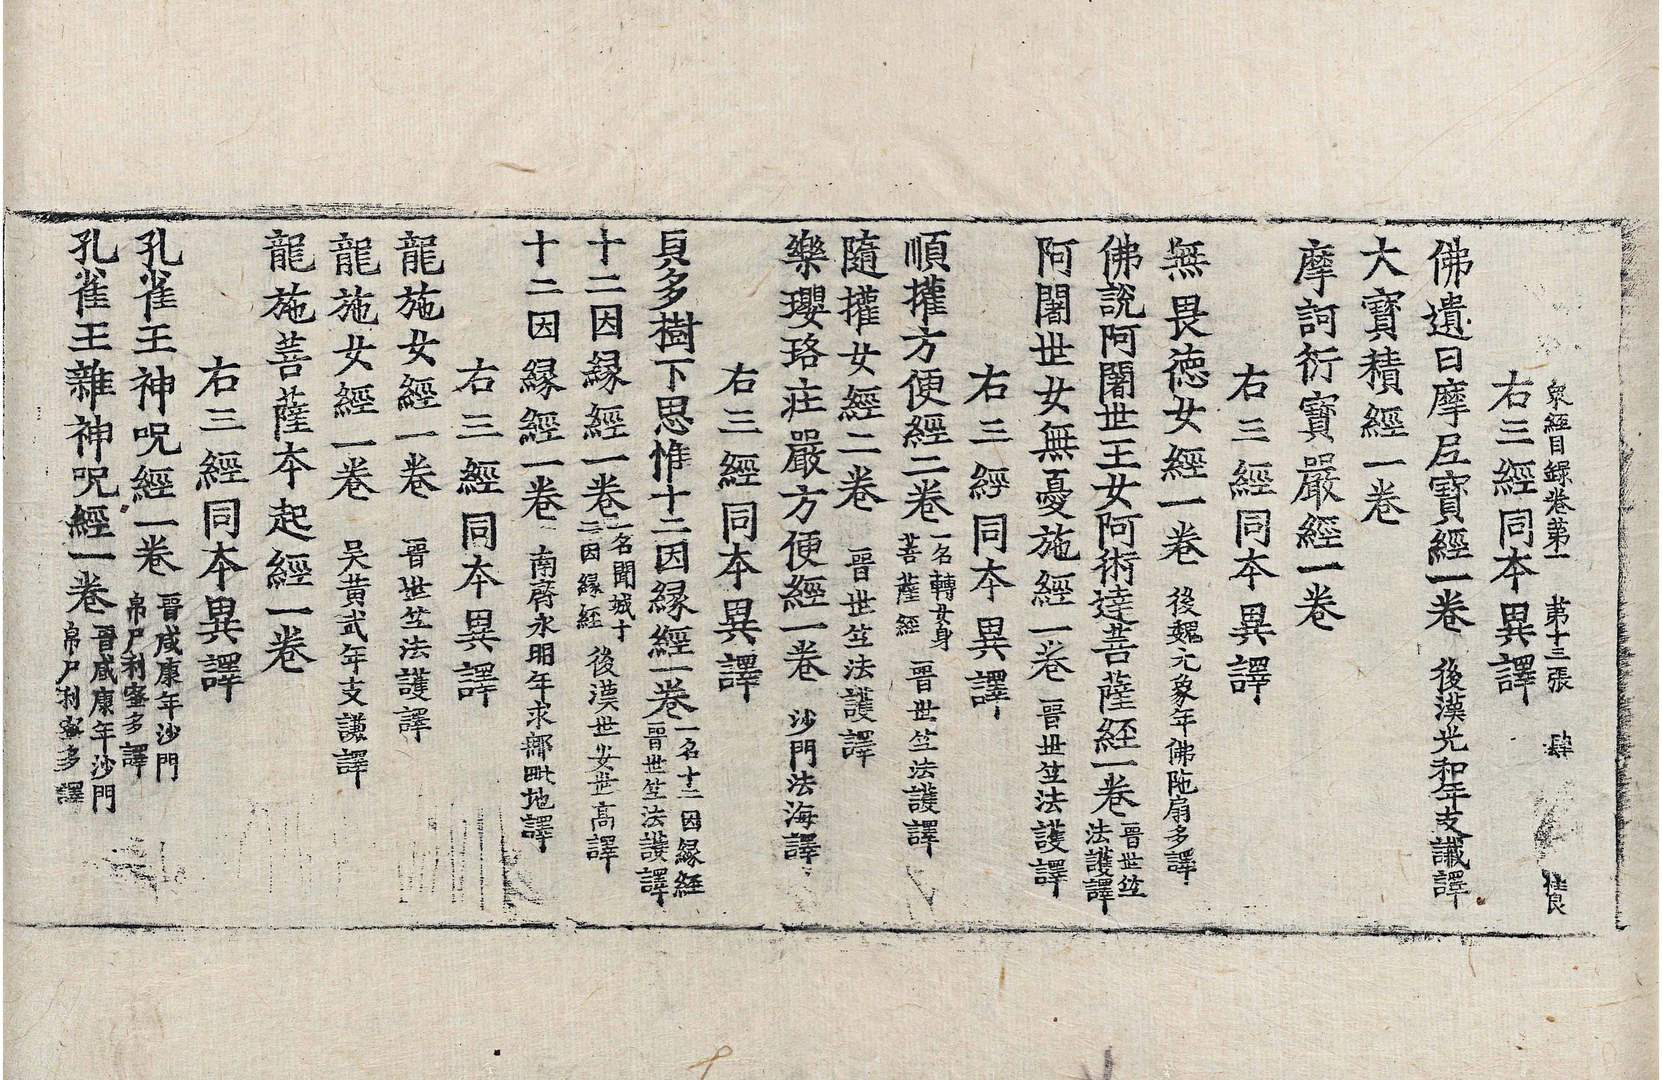 衆經目録卷第一　第十三張　肆　佳良
右三經同本異譯
佛遺日摩尼寶經一卷　後漢光和年支讖譯
大寶積經一卷
摩訶衍寶嚴經一卷
右三經同本異譯
無畏德女經一卷　後魏元象年佛陁扇多譯
佛說阿闍世王女阿術達菩薩經一卷　晉世竺法護譯
阿闍世女無憂施經一卷　晉世竺法護譯
右三經同本異譯
順權方便經二卷　一名轉女身菩薩經　晉世竺法護譯
隨權女經二卷　晉世竺法護譯
樂瓔珞莊嚴方便經一卷　沙門法海譯
右三經同本異譯
貝多樹下思惟十二因縁經一卷　一名十二因縁經晉世竺法護譯
十二因縁經一卷　一名聞城十二因縁經　後漢世安世高譯
十二因縁經一卷　南齊永明年求那毗地譯
右三經同本異譯
龍施女經一卷　晉世竺法護譯
龍施女經一卷　吴黄武年支謙譯
龍施菩薩本起經一卷
右三經同本異譯
孔雀王神呪經一卷　晉咸康年沙門帛尸利蜜多譯
孔雀王雜神呪經一卷　晉咸康年沙門帛尸利蜜多譯